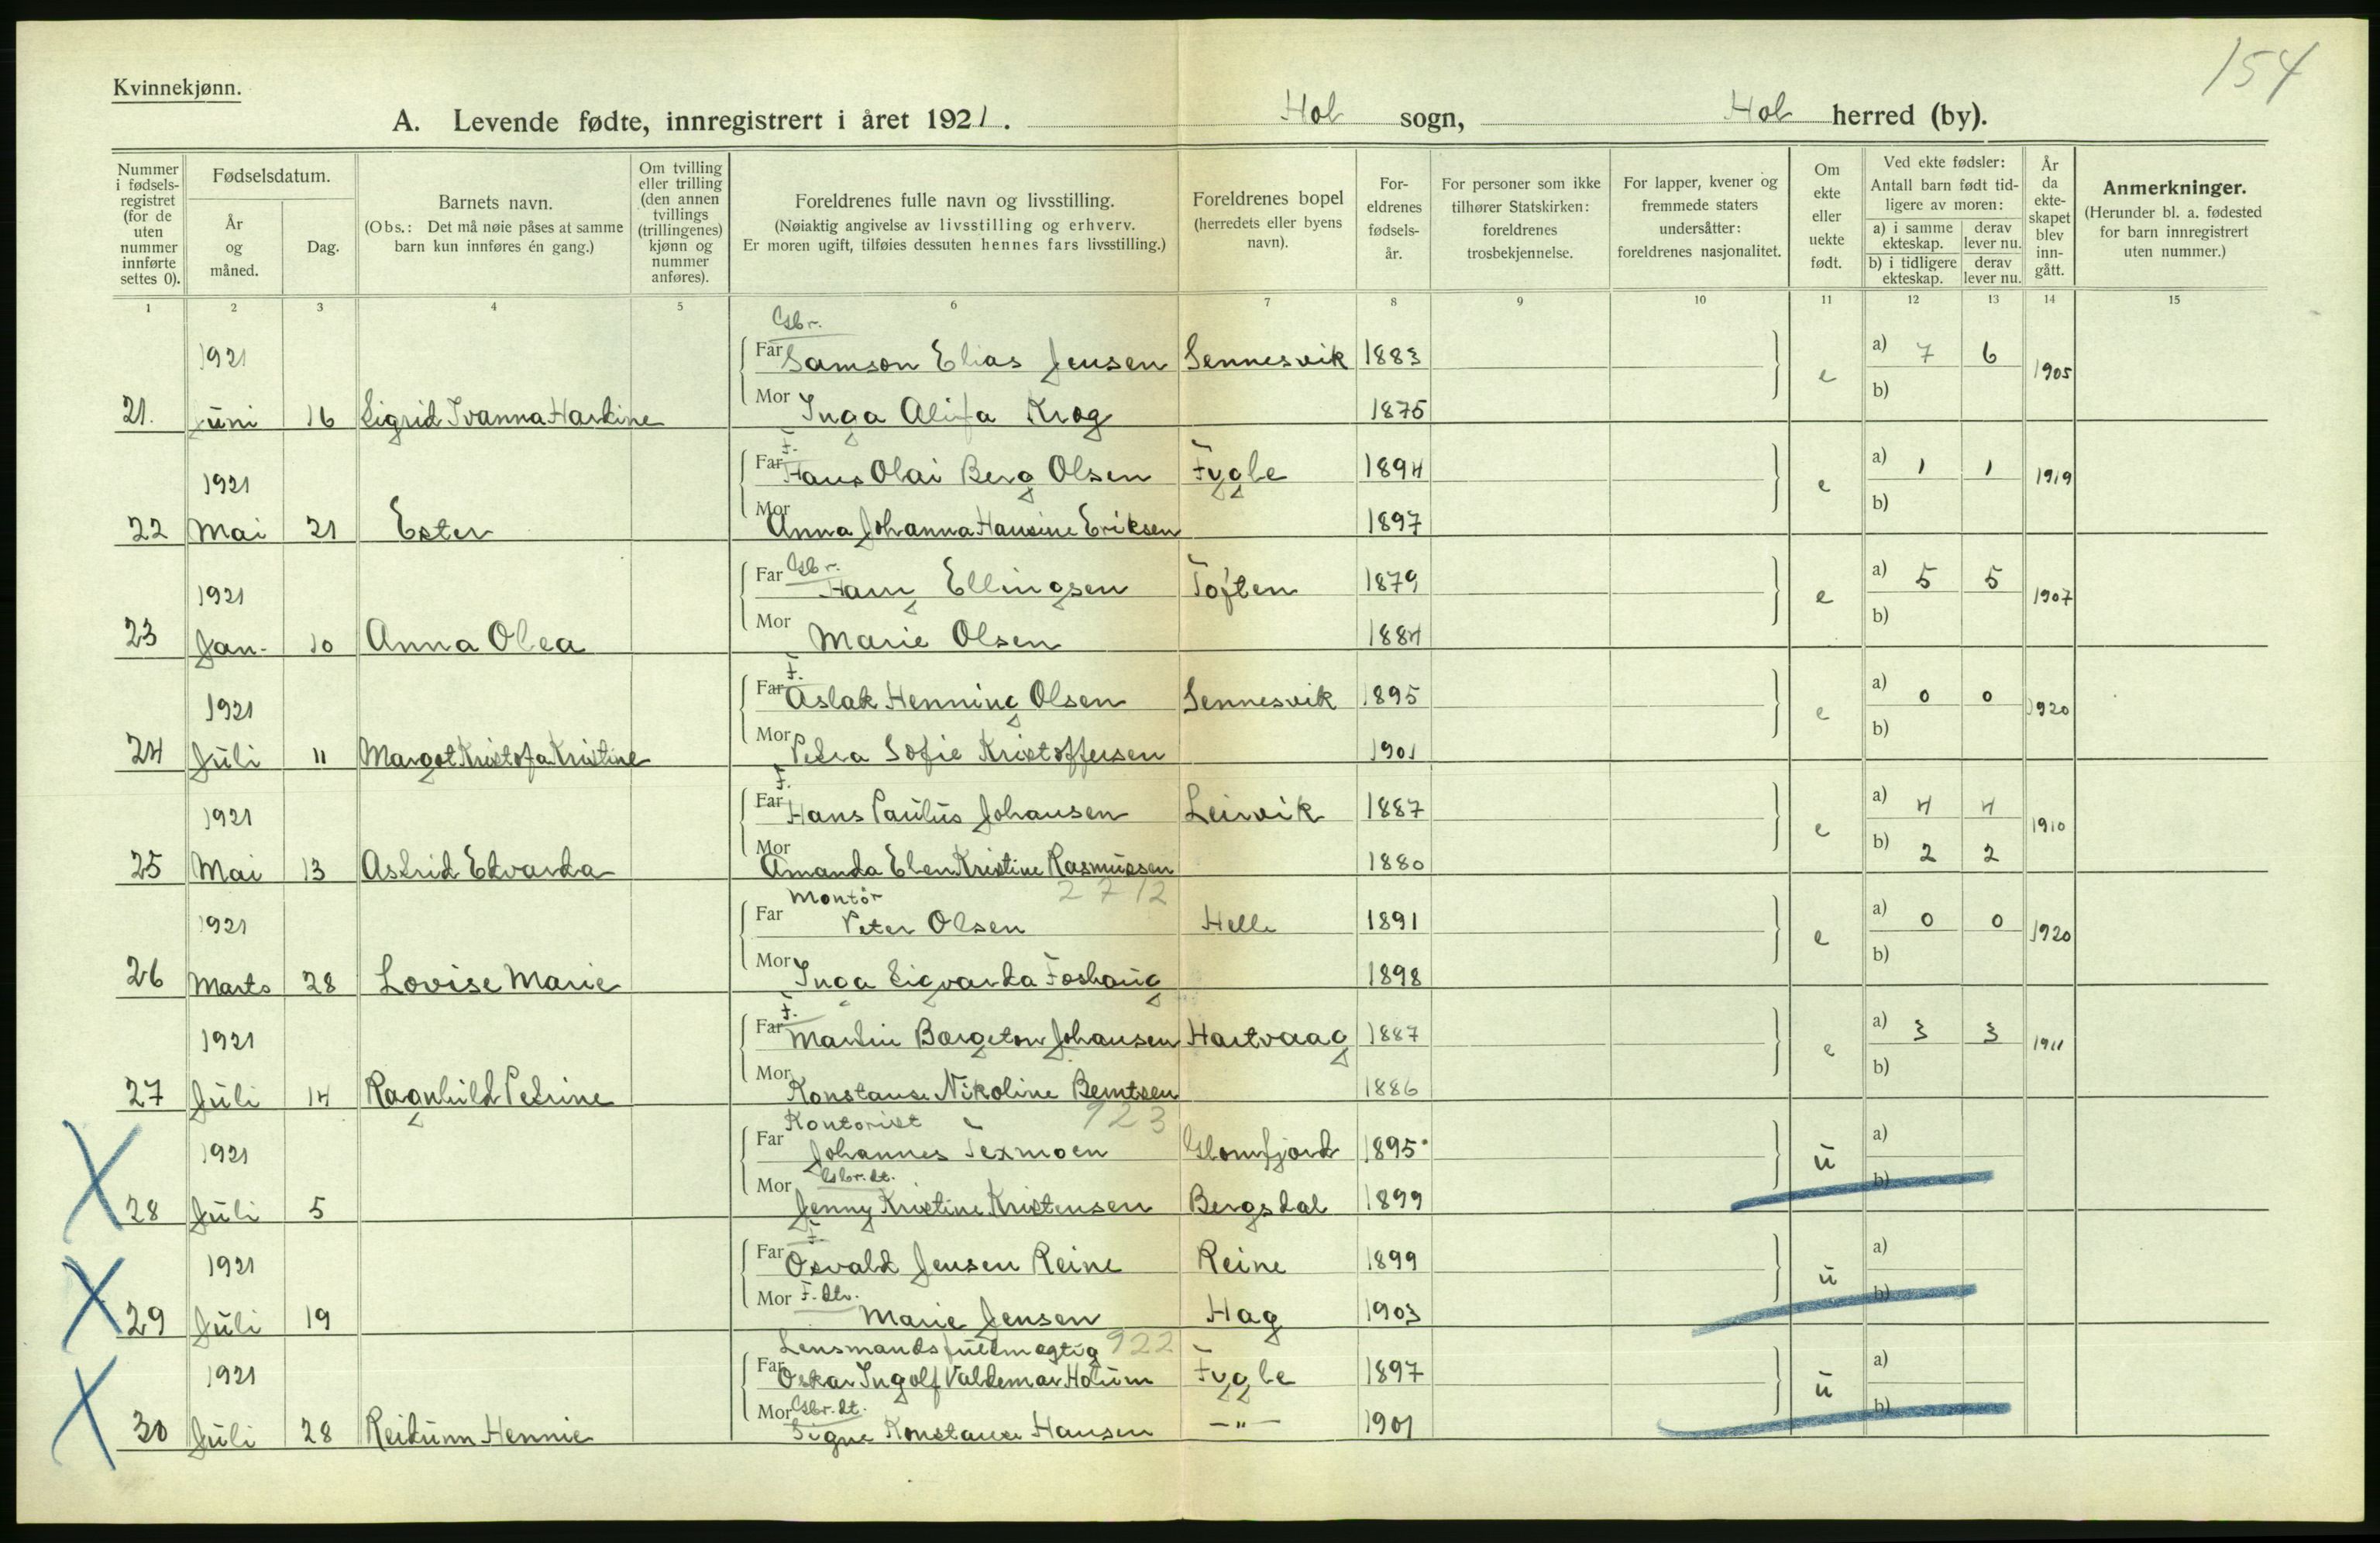 154
Kvinnekjønn.
A. Levende fødte, innregistrert i året 1921. Hol sogn, Hol herred (by).
Nummer i fødselsregistret (for de uten nummer innførte settes 0).
Fødselsdatum.
År og måned.
Dag.
Barnets navn.
(Obs.: Det må nøie påses at samme barn kun innføres én gang.)
Om tvilling eller trilling (den annen tvillings (trillingenes) kjønn og nummer anføres).
Foreldrenes fulle navn og livsstilling.
(Nøiaktig angivelse av livsstilling og erhverv.
Er moren ugift, tilføies dessuten hennes fars livsstilling.)
Foreldrenes bopel
(herredets eller byens navn).
Foreldrenes fødselsår.
For personer som ikke tilhører Statskirken: foreldrenes trosbekjennelse.
For lapper, kvener og fremmede staters undersåtter: foreldrenes nasjonalitet.
Om ekte eller uekte født.
Ved ekte fødsler:
Antall barn født tidligere av moren:
a) i samme ekteskap. derav lever nu.
b) i tidligere ekteskap. derav lever nu.
År da ekteskapet blev inngått.
Anmerkninger.
(Herunder bl. a. fødested for barn innregistrert uten nummer.)
1 2 3 4 5 6 7 8 9 10 11 12 13 14 15
Gbr.
1921 Far Samson Elias Jensen Sennesvik 1883 e a) 7 6 1905
b)
21. Juni 16 Sigrid Ivanna Hardine Mor Inga Alida Krog 1875
F.
1921 Far Hans Olai Berg Olsen Fygle 1894 e a) 1 1 1919
b)
22 Mai 21 Ester Mor Anna Johanna Hansine Eriksen 1897
Gbr.
1921 Far Hans Ellingsen Toften 1879 e a) 5 5 1907
b)
23 Jan. 10 Anna Olea Mor Marie Olsen 1884
F.
1921 Far Aslak Henning Olsen Sennesvik 1895 e a) 0 0 1920
b)
24 Juli 11 Margot Kristofa Kristine Mor Petra Sofie Kristoffersen 1901
F.
1921 Far Hans Paulus Johansen Leirvik 1887 e a) 4 4 1910
b) 2 2
25 Mai 13 Astrid Edvarda Mor Amanda Elen Kristine Rasmussen 1880
Montør 2712
1921 Far Peter Olsen Helle 1891 e a) 0 0 1920
b)
26 Marts 28 Lovise Marie Mor Inga Sigvarda Foshaug 1898
F.
1921 Far Martin Borgeton Johansen Hartvaag 1887 e a) 3 3 1911
b)
27 Juli 14 Ragnhild Petrine Mor Konstanse Nikoline Berntsen 1886
Kontorist 923
1921 Far Johannes Texmoen Glomfjord 1895 u a)
Gbr. dt. b)
28 Juli 5 Mor Jenny Kristine Kristensen Bergsdal 1899
F.
1921 Far Osvald Jensen Reine Reine 1899 u a)
b)
29 Juli 19 Mor F. dtr. Marie Jensen Hag 1903
Lensmandsfuldmægtig 922
1921 Far Oskar Ingolf Valdemar Holum Fygle 1897 u a)
Gbr. dt. b)
30 Juli 28 Reidunn Hennie Mor Signe Konstanse Hansen —"— 1901